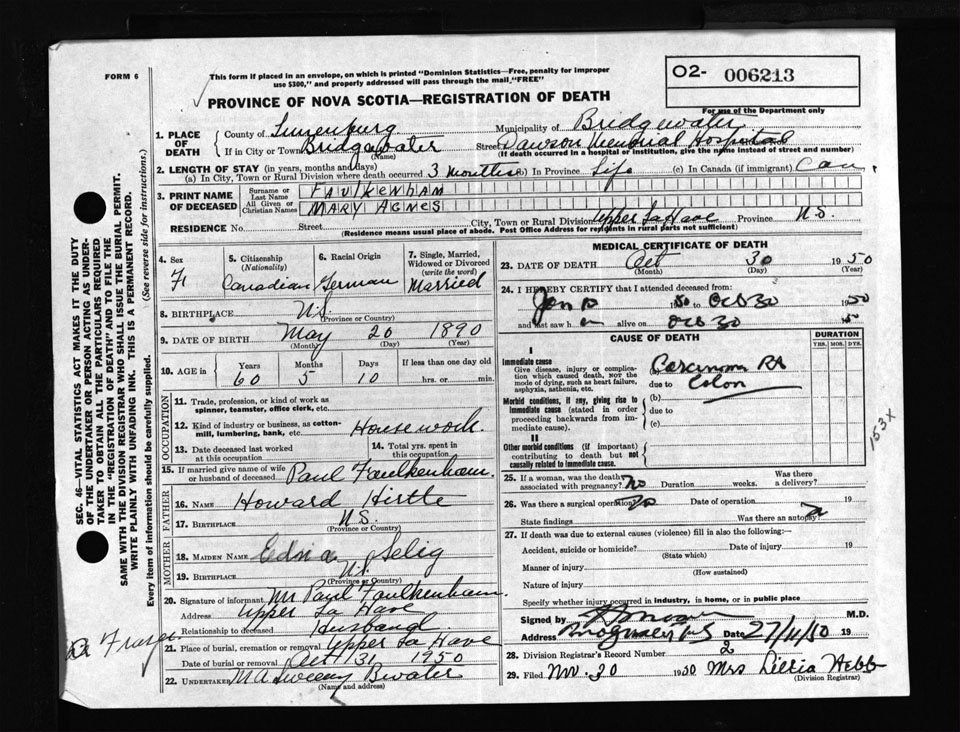 FORM 6
This form if placed in an envelope, on which is printed "Dominion Statistics—Free, penalty for improper
use $300," and properly addressed will pass through the mail "FREE"
O2- 006213
PROVINCE OF NOVA SCOTIA—REGISTRATION OF DEATH
For use of the Department only
1. PLACE OF DEATH County of Lunenburg Municipality of Bridgewater
If in City or Town Bridgewater (Name) Street Dawson Memorial Hospital
(If death occurred in a hospital or institution, give the name instead of street and number)
2. LENGTH OF STAY (in years, months and days)
(a) In City, Town or Rural Division where death occurred 3 months (b) In Province Life (c) In Canada (if immigrant) Can
3. PRINT NAME OF DECEASED Surname or Last Name FAULKENHAM
All Given or Christian Names MARY AGNES
RESIDENCE No. Street City, Town or Rural Division Upper La Have Province N.S.
(Residence means usual place of abode. Post Office Address for residents in rural parts not sufficient)
4. Sex F
5. Citizenship (Nationality) Canadian
6. Racial Origin German
7. Single, Married, Widowed or Divorced (write the word) Married
8. BIRTHPLACE N.S. (Province or Country)
9. DATE OF BIRTH May (Month) 20 (Day) 1890 (Year)
10. AGE in Years 60 Months 5 Days 10 If less than one day old hrs. or min.
OCCUPATION
11. Trade, profession, or kind of work as
spinner, teamster, office clerk, etc.
12. Kind of industry or business, as cotton-
mill, lumbering, bank, etc. Housework
13. Date deceased last worked
at this occupation
14. Total yrs. spent in
this occupation.
15. If married give name of wife
or husband of deceased Paul Faulkenham.
FATHER
16. Name Howard Hirtle
17. Birthplace N.S. (Province or Country)
MOTHER
18. Maiden Name Edna Selig
19. Birthplace N.S. (Province or Country)
20. Signature of informant Mr Paul Faulkenham.
Address Upper La Have
Relationship to deceased Husband
21. Place of burial, cremation or removal Upper La Have
Date of burial or removal Oct 31 1950
22. Undertaker M A Sweeny B'water
(Name and address)
MEDICAL CERTIFICATE OF DEATH
23. DATE OF DEATH Oct (Month) 30 (Day) 1950 (Year)
24. I HEREBY CERTIFY that I attended deceased from:
Jan 50 to Oct 30 1950
and last saw h er alive on Oct 30 50
CAUSE OF DEATH
DURATION
YRS. MOS. DYS.
I
Immediate cause
Give disease, injury or complica-
tion which caused death, NOT the
mode of dying, such as heart failure,
asphyxia, asthenia, etc.
Carcinoma Rt
due to Colon
Morbid conditions, if any, giving rise to
immediate cause (stated in order
proceeding backwards from im-
mediate cause).
(b)
due to
(c)
II
Other morbid conditions (if important)
contributing to death but not
causally related to immediate cause.
153X
25. If a woman, was the death
associated with pregnancy? no Duration weeks. Was there
a delivery?
26. Was there a surgical operation? no Date of operation 19
State findings Was there an autopsy?
27. If death was due to external causes (violence) fill in also the following:
Accident, suicide or homicide? (State which) Date of injury 19
Manner of injury (How sustained)
Nature of injury
Specify whether injury occurred in industry, in home, or in public place
Signed by M.D.
Address Date 27/11/50 19
28. Division Registrar's Record Number 2
29. Filed Nov. 30 1950 Mrs Lillia Hebb
(Division Registrar)
SEC. 46—VITAL STATISTICS ACT MAKES IT THE DUTY
OF THE UNDERTAKER OR PERSON ACTING AS UNDER-
TAKER TO OBTAIN ALL THE PARTICULARS REQUIRED
IN THE "REGISTRATION OF DEATH" AND TO FILE THE
SAME WITH THE DIVISION REGISTRAR WHO SHALL ISSUE THE BURIAL PERMIT.
WRITE PLAINLY WITH UNFADING INK. THIS IS A PERMANENT RECORD.
Every item of information should be carefully supplied. (See reverse side for instructions.)